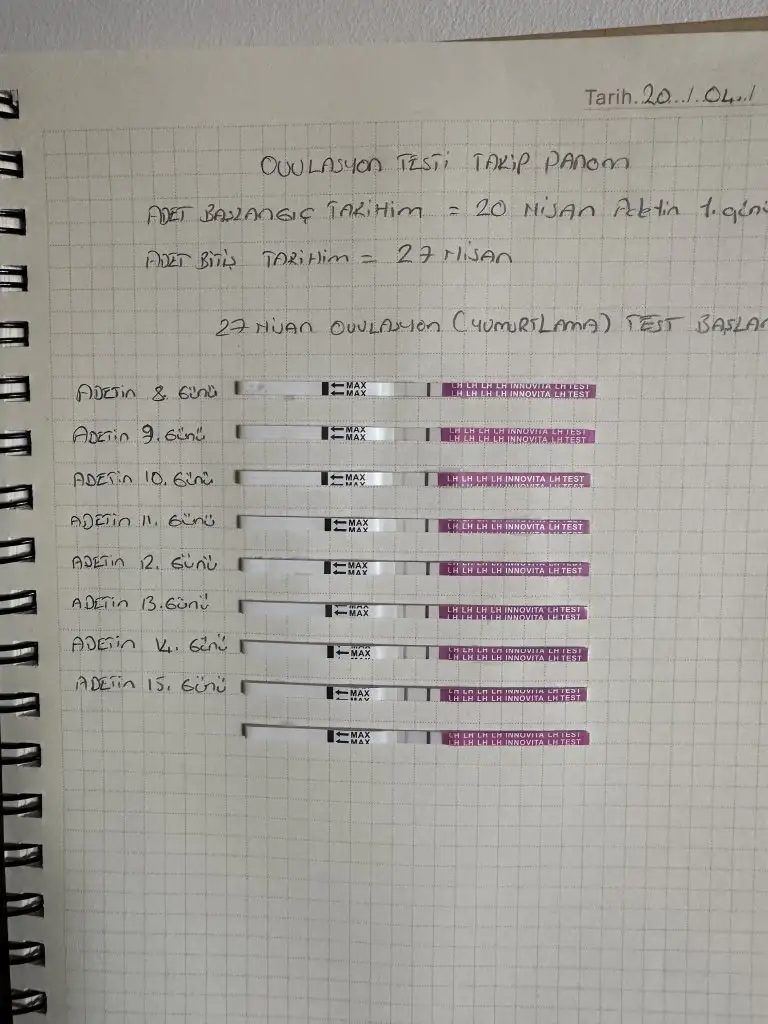 Tarih.20../.04../
OVULASYON TESTİ TAKİP PANOM
ADET BAŞLANGIÇ TARİHİM = 20 NİSAN Adetin 1. günü
ADET BİTİŞ TARİHİM = 27 NİSAN
27 NİSAN OVULASYON (YUMURTLAMA) TEST BAŞLAN
ADETİN 8. GÜNÜ MAX LH LH LH LH INNOVITA LH TEST
MAX LH LH LH LH INNOVITA LH TEST
ADETİN 9. GÜNÜ MAX LH LH LH LH INNOVITA LH TEST
MAX LH LH LH LH INNOVITA LH TEST
ADETİN 10. GÜNÜ MAX LH LH LH LH INNOVITA LH TEST
MAX
ADETİN 11. GÜNÜ MAX LH LH LH LH INNOVITA LH TEST
MAX
ADETİN 12. GÜNÜ MAX LH LH LH LH INNOVITA LH TEST
MAX
ADETİN 13. GÜNÜ MAX LH LH LH LH INNOVITA LH TEST
MAX
ADETİN 14. GÜNÜ MAX LH LH LH LH INNOVITA LH TEST
ADETİN 15. GÜNÜ MAX LH LH LH LH INNOVITA LH TEST
MAX LH LH LH LH INNOVITA LH TEST
MAX LH LH LH LH INNOVITA LH TEST
MAX LH LH LH LH INNOVITA LH TEST